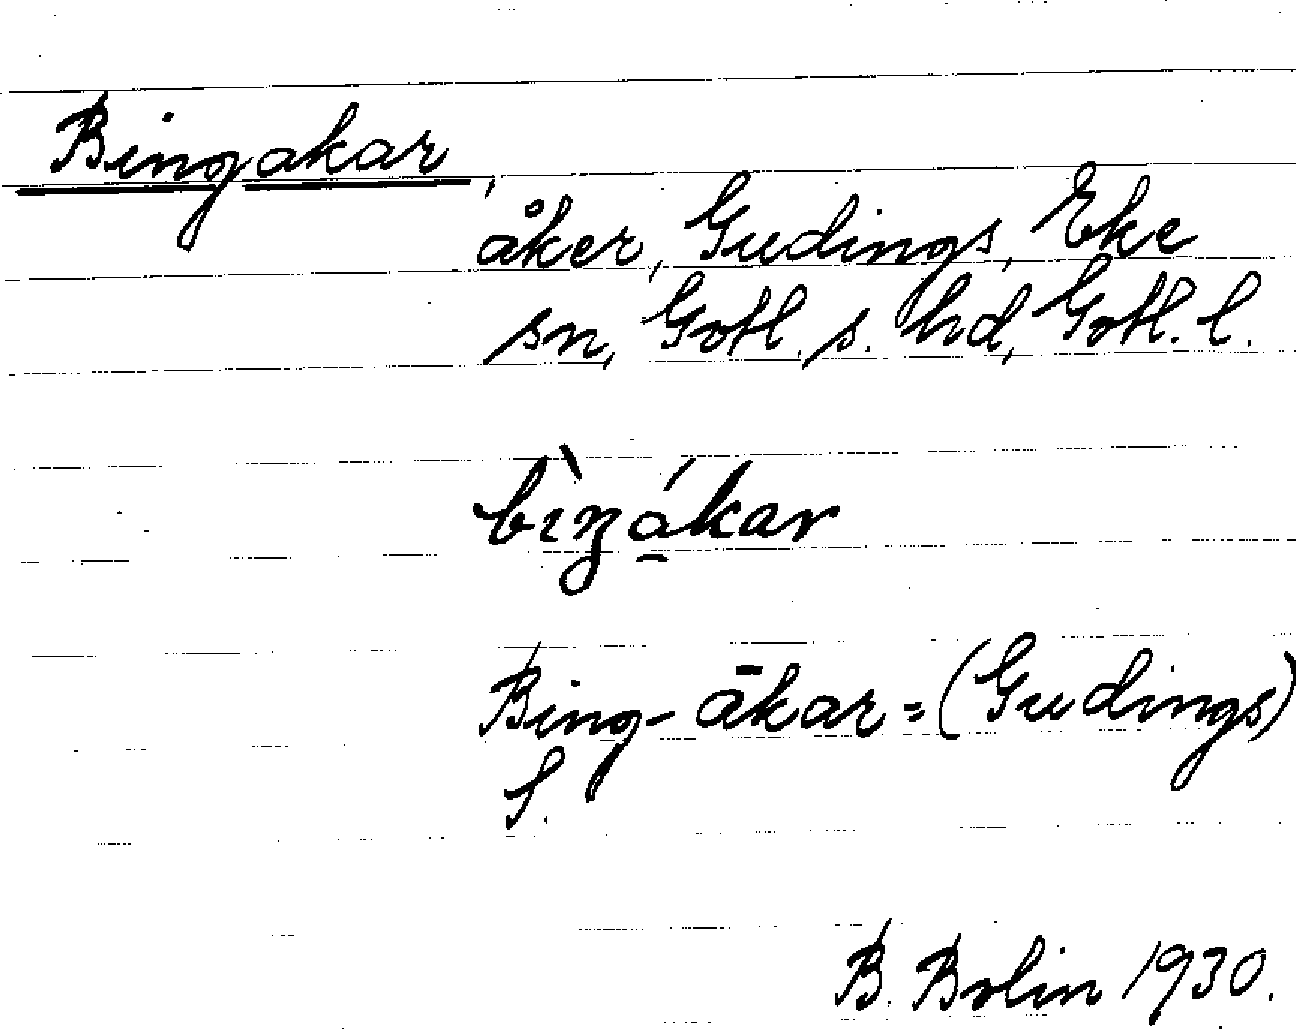 Bingakar,
åker, Gudings, Eke
sn, Gotl. s. hd, Gotl. l.
bìŋákar
Bing-ākar = (Gudings)
S.
B. Bolin 1930.